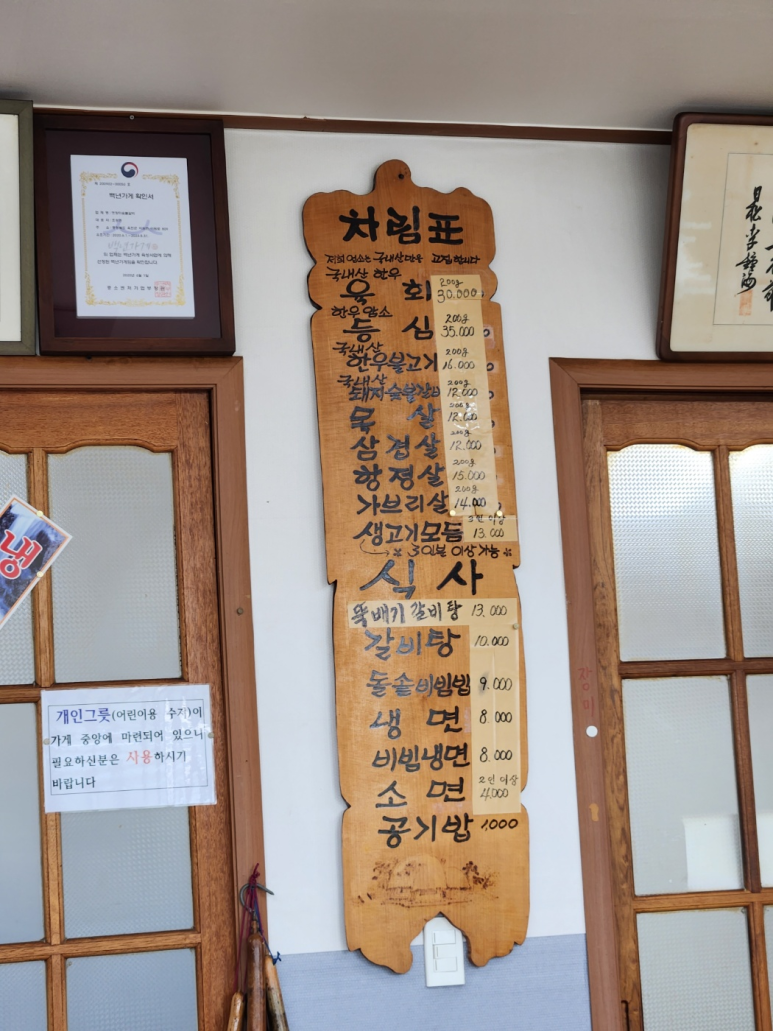 백년가게 확인서
차림표
저희 업소는 국내산만을 고집합니다
국내산 한우
육 회 200g 30.000
한우 암소
등 심 200g 35.000
국내산
한우불고기 200g 16.000
국내산
돼지숯불갈비 200g 12.000
목 살 200g 12.000
삼겹살 200g 12.000
항정살 200g 15.000
가브리살 200g 14.000
생고기모듬 3인 이상 13.000
※ 3인분 이상 가능 ※
식 사
뚝배기 갈비탕 13.000
갈비탕 10.000
돌솥비빔밥 9.000
냉 면 8.000
비빔냉면 8.000
소 면 2인 이상 4.000
공기밥 1000
냉
개인그릇(어린이용 수저)이
가게 중앙에 마련되어 있으니
필요하신분은 사용하시기
바랍니다
장미